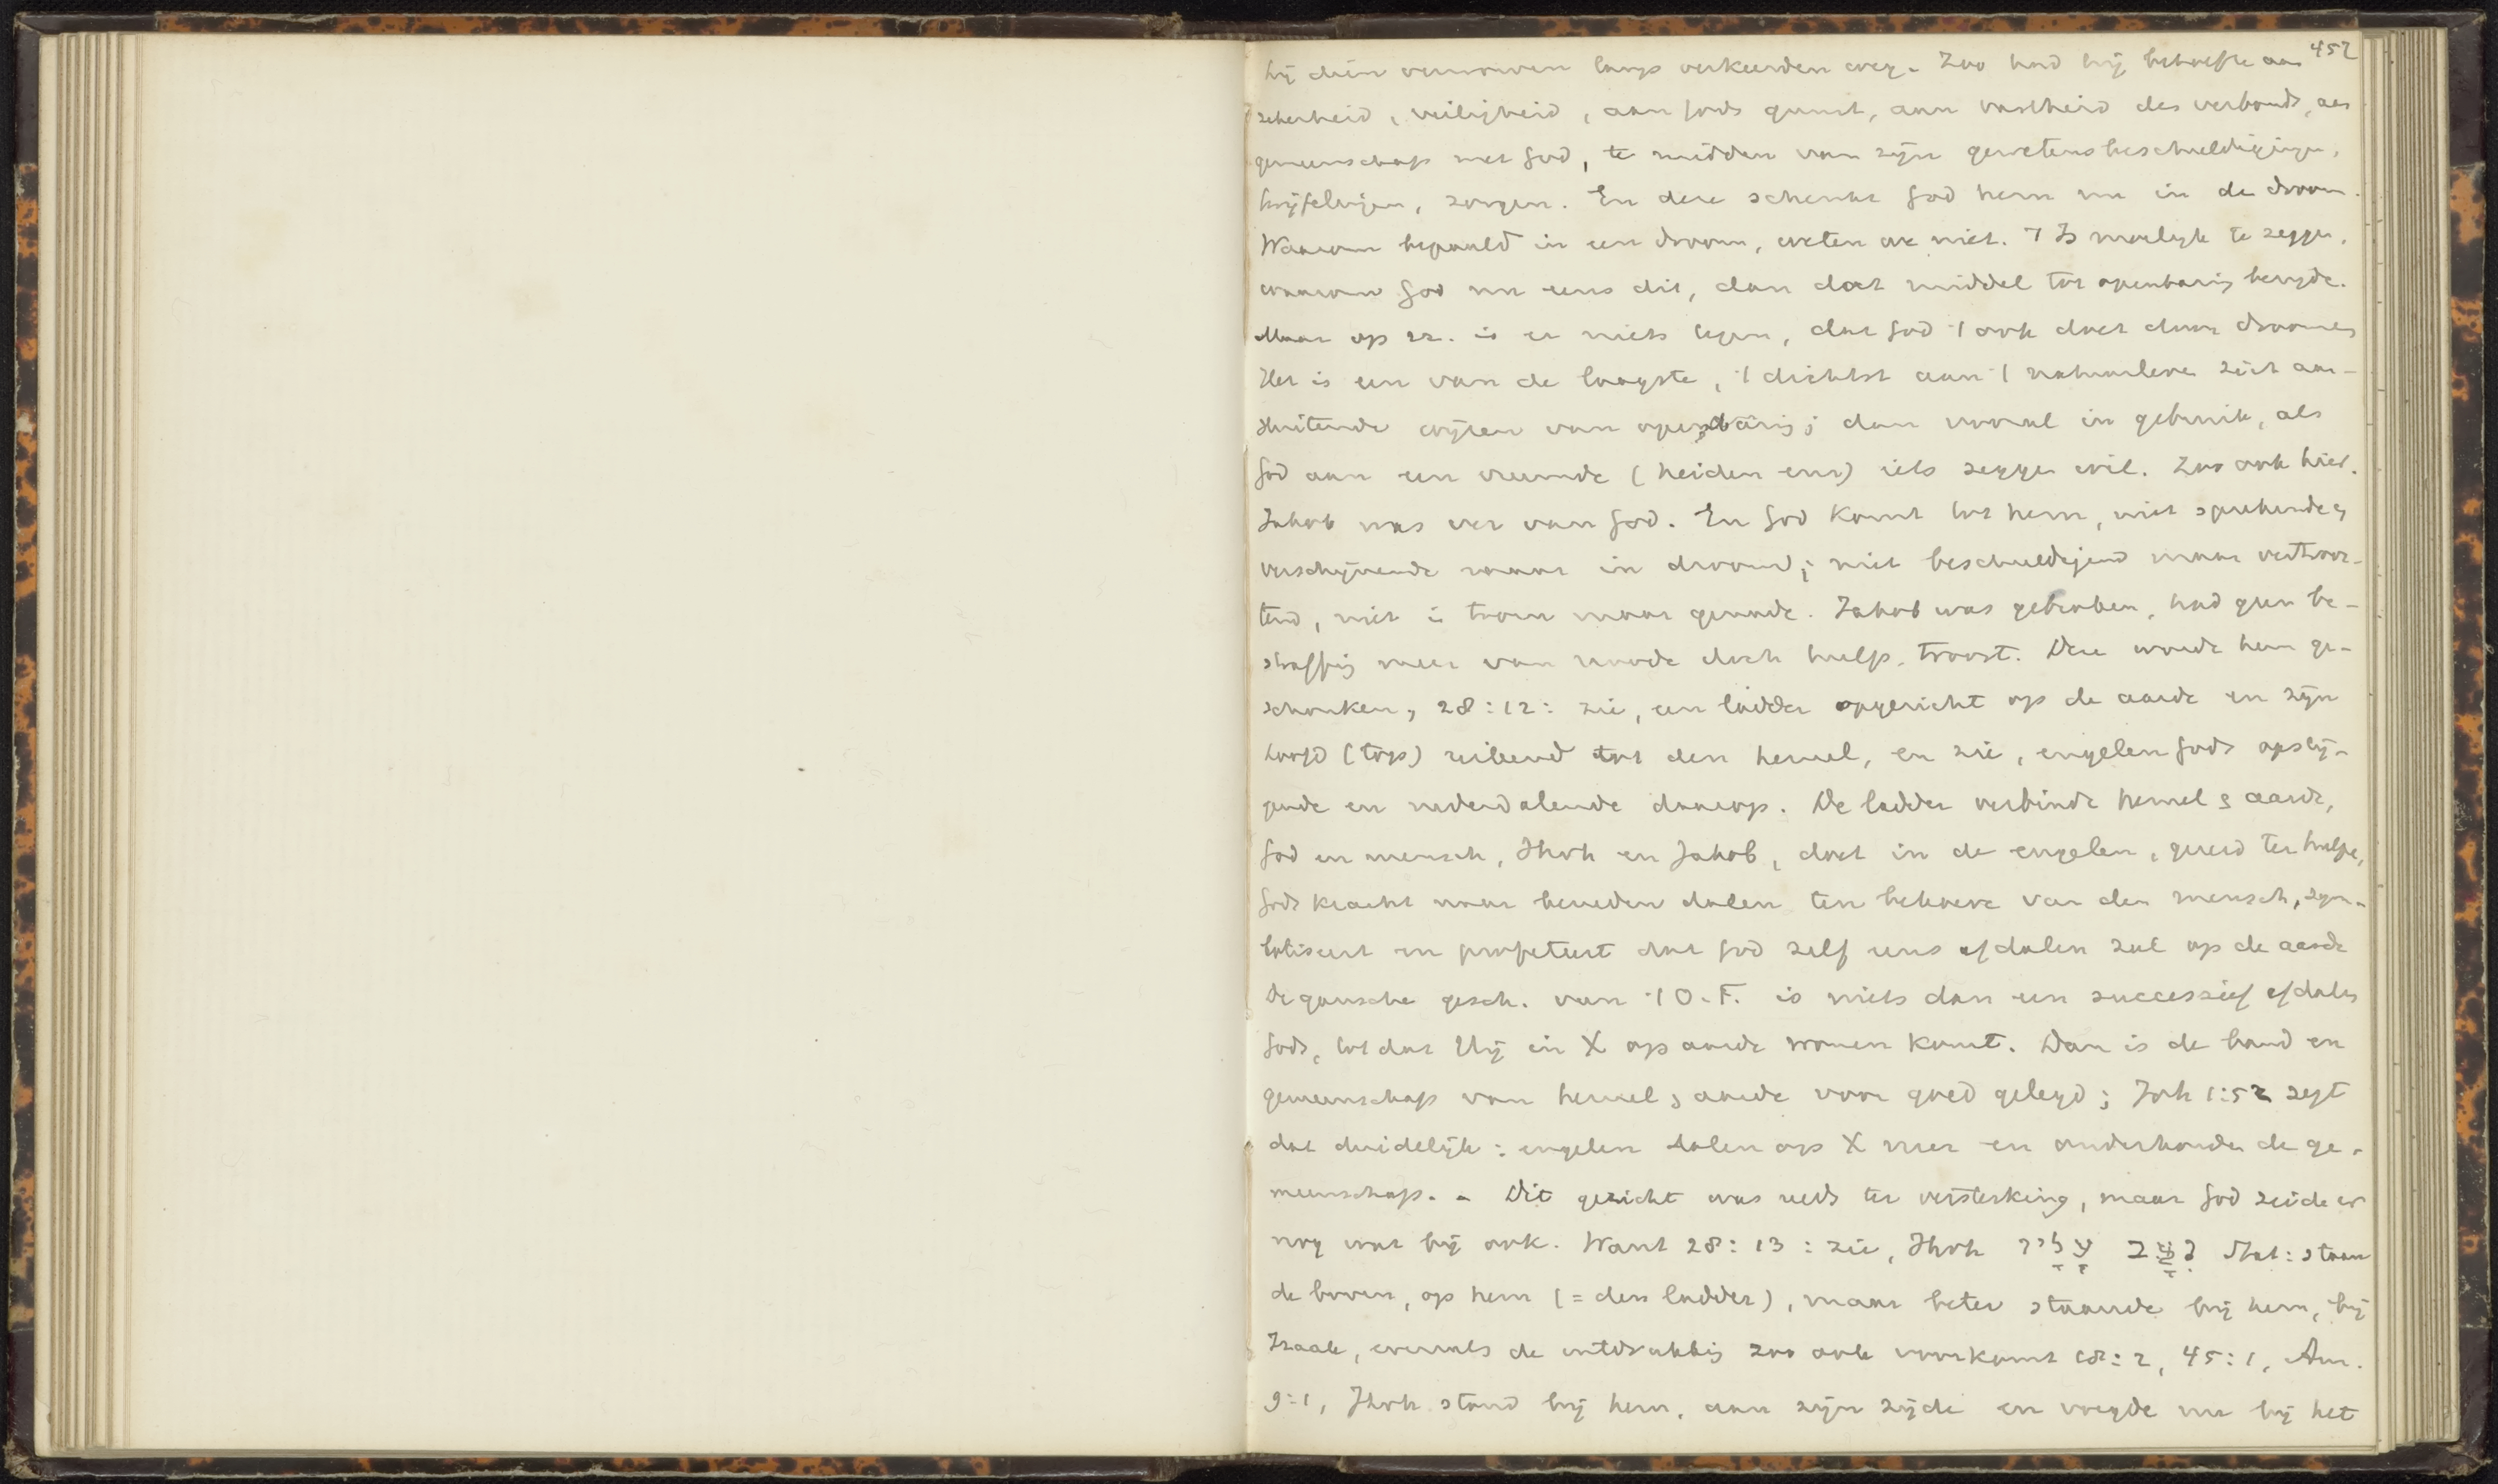 452
hij dien verworven langs verkeerden weg. Zoo had hij behoefte aan
zekerheid, veiligheid, aan Gods gunst, aan vastheid des verbonds, aan
gemeenschap met God, te midden van zijn gewetensbeschuldigingen,
twijfelingen, zorgen. En deze schenkt God hem nu in de droom.
Waarom bepaald in een droom, weten we niet. 't Is moeilijk te zeggen,
waarom God nu eens dit, dan dat middel tot openbaring bezigde.
Maar op zz. is er niets tegen, dat God 't ook doet door droomen
Het is een van de laagste, 't dichtst aan 't natuurleven zich aan-
sluitende wijzen van openbaring; dan vooral in gebruik, als
God aan een vreemde (heiden enz) iets zeggen wil. Zoo ook hier.
Jakob was ver van God. En God komt tot hem, niet sprekende en
verschijnende maar in droom; niet beschuldigend maar vertroos-
tend, niet in toorn maar genade. Jakob was gebroken, had geen be-
straffing meer van noode doch hulp, troost. Deze wordt hem ge-
schonken, 28:12: zie, een ladder opgericht op de aarde en zijn
hoofd (top) reikend tot den hemel, en zie, engelen Gods opstij-
gende en nederdalende daarop. De ladder verbindt hemel & aarde,
God en mensch, Jhvh en Jakob, doet in de engelen, gereed ter hulpe,
Gods kracht naar beneden dalen ten behoeve van den mensch, sym-
boliseert en profeteert dat God zelf eens afdalen zal op de aarde
De gansche gesch. van 't O.T. is niets dan een successief afdalen
Gods, tot dat Hij in X op aarde wonen komt. Dan is de band en
gemeenschap van hemel & aarde voor goed gelegd; Joh 1:52 zegt
dat duidelijk: engelen dalen op X neer en onderhouden de ge-
meenschap. - Dit gezicht was reeds ter versterking, maar God zeide er
nog wat bij ook. Want 28:13: zie, Jhvh נִצָּב עָלָיו Stat: staan
de boven, op hem (= den ladder), maar beter staande bij hem, bij
Izaak, evenals de uitdrukking zoo ook voorkomt 18:2, 45:1, Am.
9:1, Jhvh stond bij hem, aan zijn zijde en voegde nu bij het